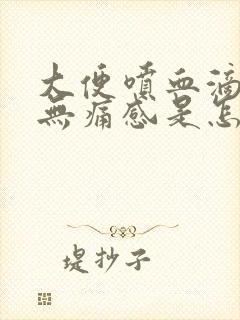 大便噴血滴
無痛感是怎
堤抄子